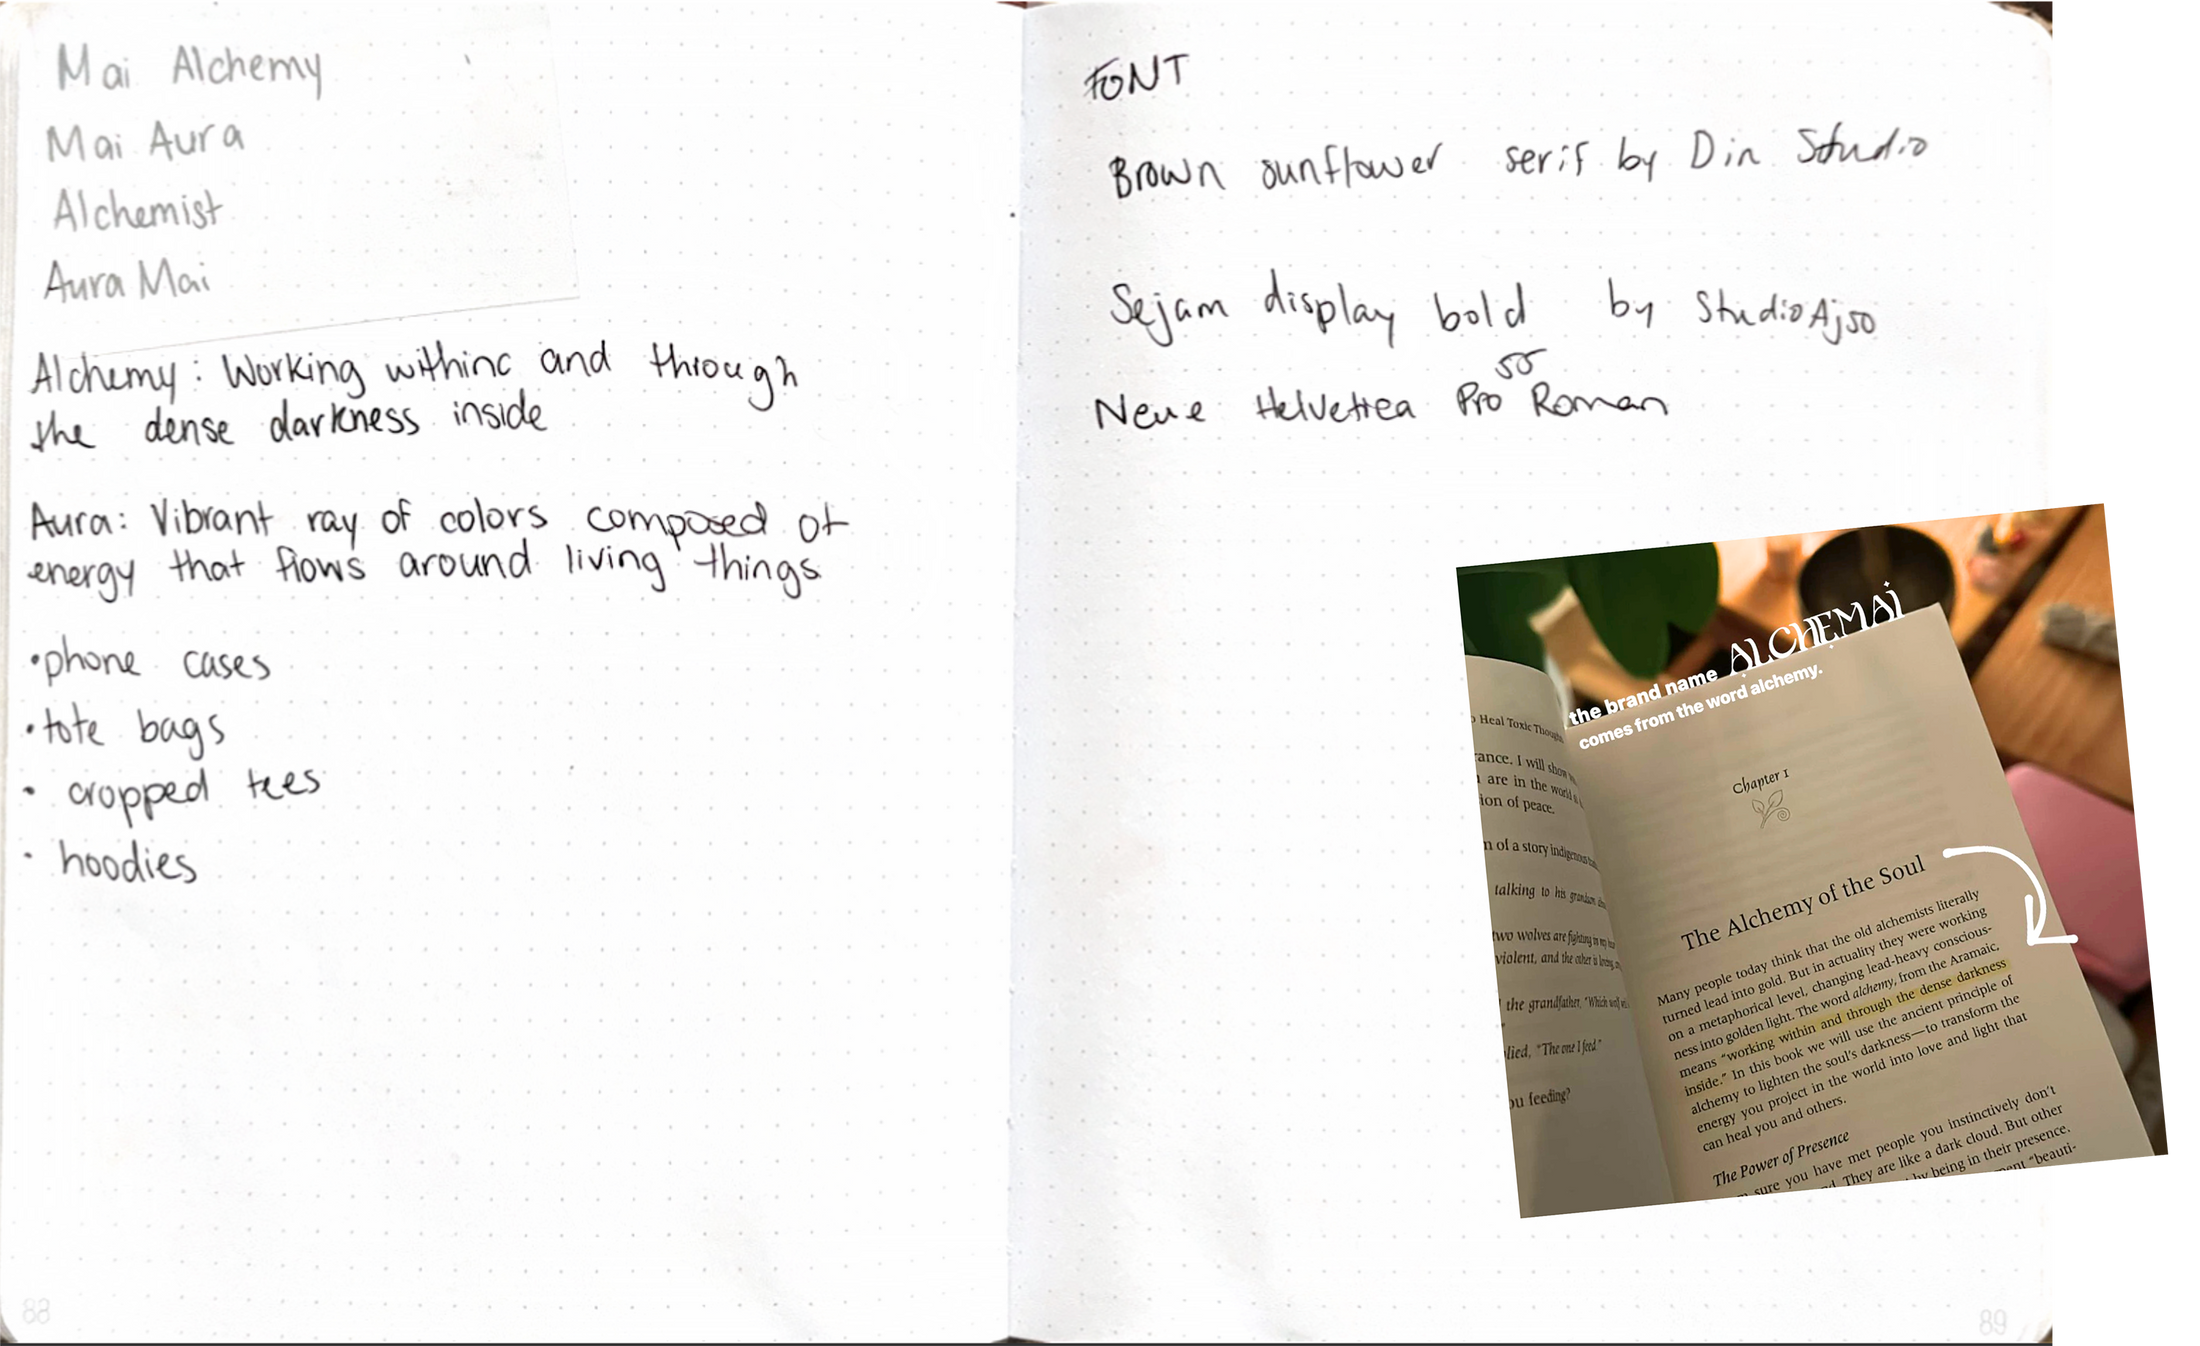 Mai Alchemy
Mai Aura
Alchemist
Aura Mai
Alchemy: Working withinc and through
the dense darkness inside
Aura: Vibrant ray of colors composed of
energy that flows around living things
•phone cases
•tote bags
• cropped tees
• hoodies
88
FONT
Brown sunflower serif by Din Studio
Sejam display bold by StudioAjso
55
Neue Helvetica Pro Roman
the brand name ALCHEMAI
comes from the word alchemy.
Heal Toxic Though
ance. I will show
are in the world
ion of peace.
of a story indigenous
talking to his grandson
two wolves are fighting in my
violent, and the other is loving,
the grandfather, "Which wolf
lied, "The one I feed."
ou feeding?
Chapter 1
The Alchemy of the Soul
Many people today think that the old alchemists literally
turned lead into gold. But in actuality they were working
on a metaphorical level, changing lead-heavy conscious-
ness into golden light. The word alchemy, from the Aramaic,
means "working within and through the dense darkness
inside." In this book we will use the ancient principle of
alchemy to lighten the soul's darkness—to transform the
energy you project in the world into love and light that
can heal you and others.
The Power of Presence
sure you have met people you instinctively don't
They are like a dark cloud. But other
by being in their presence.
"beauti-
89